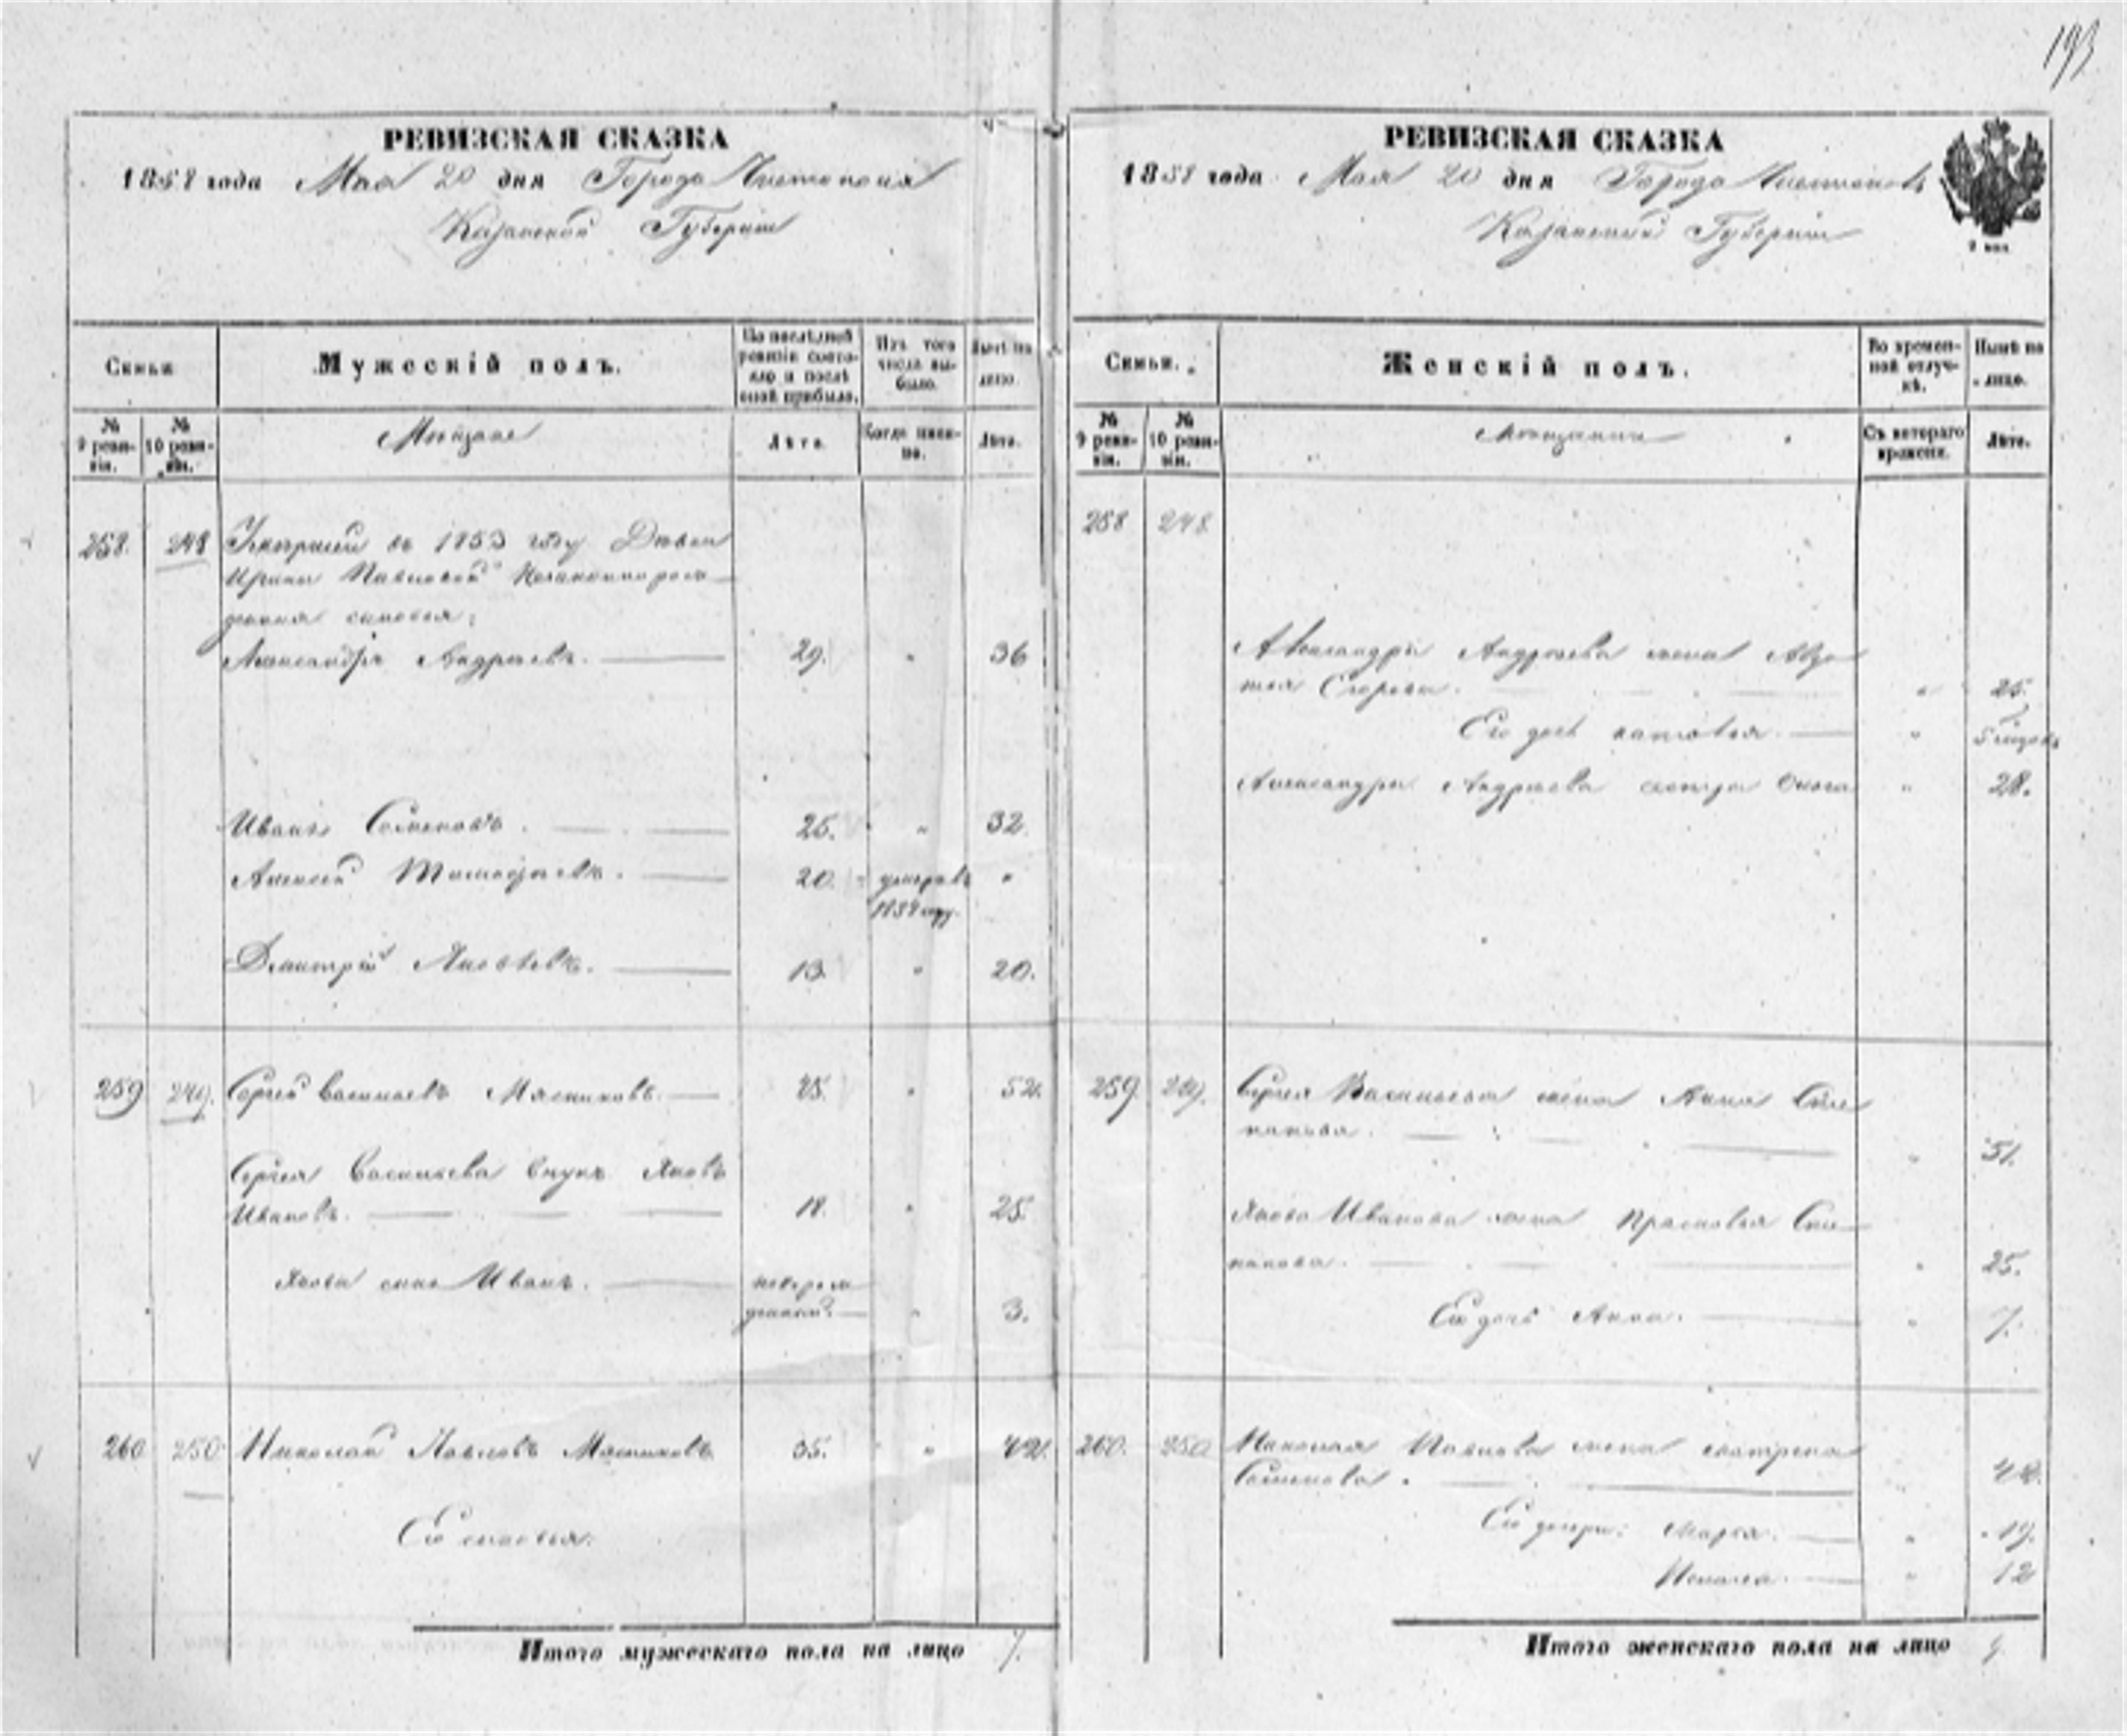 193
РЕВИЗСКАЯ СКАЗКА
1858 года Мая 20 дня Города Чистополя
Казанской Губернiи
Семьи
Мужескiй полъ.
По послѣдней ревизiи состояло и послѣ оной прибыло.
Изъ того числа выбыло.
Нынѣ на лицо.
№ 9 ревизiи.
№ 10 ревизiи.
Мѣщане
Лѣта.
Когда именно.
Лѣта.
258. 248 въ 1853 году Девки
Ирины Павловой Незаконнорож-
денныя сыновья:
Александръ Андреевъ. 29. " 36
Иванъ Семеновъ. 25. " 32.
Алексей Тимофеевъ. 20. умеръ въ "
185 году.
Дмитрiй Яковлевъ. 13. " 20.
259 249. Сергей Васильевъ Мясниковъ. 45. " 52.
Сергея Васильева внукъ Яковъ
Ивановъ. 18. " 25.
Якова сынъ Иванъ. новорож-
денный. " 3.
260 250 Николай Павловъ Мясниковъ 35. " 42.
Его сыновья:
Итого мужескаго пола на лицо 7.
РЕВИЗСКАЯ СКАЗКА
1858 года Мая 20 дня Города Чистополя
Казанской Губернiи
Семьи.
Женскiй полъ.
Во временной отлучкѣ.
Нынѣ на лицо.
№ 9 ревизiи.
№ 10 ревизiи.
Мѣщанки
Съ котораго времени.
Лѣта.
258 248
Александра Андреева жена Авдо-
тья Егорова. " 25.
Его дочь Наталья. " 5 месяцовъ
Александра Андреева сестра " 28.
259. 249. Сергея Васильева жена Анна Сте-
панова. " 51.
Якова Иванова жена Прасковья Сте-
панова. " 25.
Его дочь Анна. " 7.
260. 250 Николая Павлова жена
Семенова. " 42.
Его дочери: Марья. " 19.
" 12
Итого женскаго пола на лицо 9